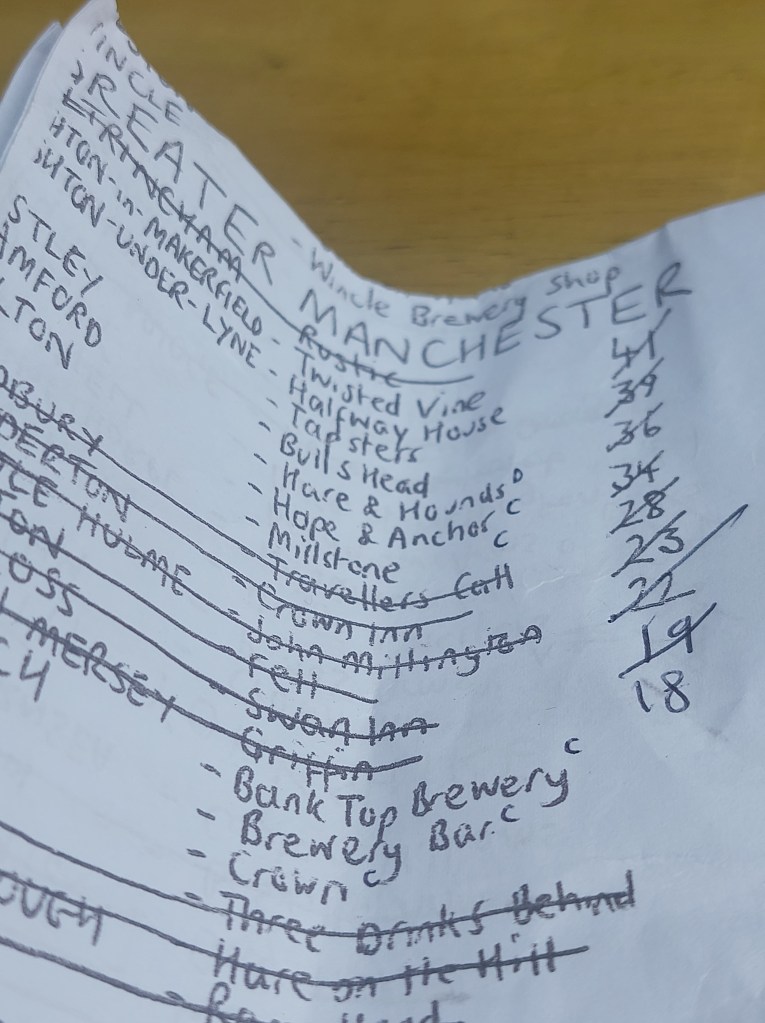 INCLE - Wincle Brewery Shop
REATER MANCHESTER
LTRINCHAM - Rustic 41
HTON-in-MAKERFIELD - Twisted Vine 39
HTON-UNDER-LYNE - Halfway House 36
- Tapsters 34
STLEY - Bulls Head 28
AMFORD - Hare & Hounds D 23
LTON - Hope & Anchor C 22
- Millstone C 19
DBURY - Travellers Call 18
DERTON - Crown Inn
LE HULME - John Millington
TON - Fell
OSS - Swan Inn
MERSEY - Griffin
CH - Bank Top Brewery C
- Brewery Bar C
- Crown C
- Three Drinks Behind
OUGH Hare on the Hill
- Head